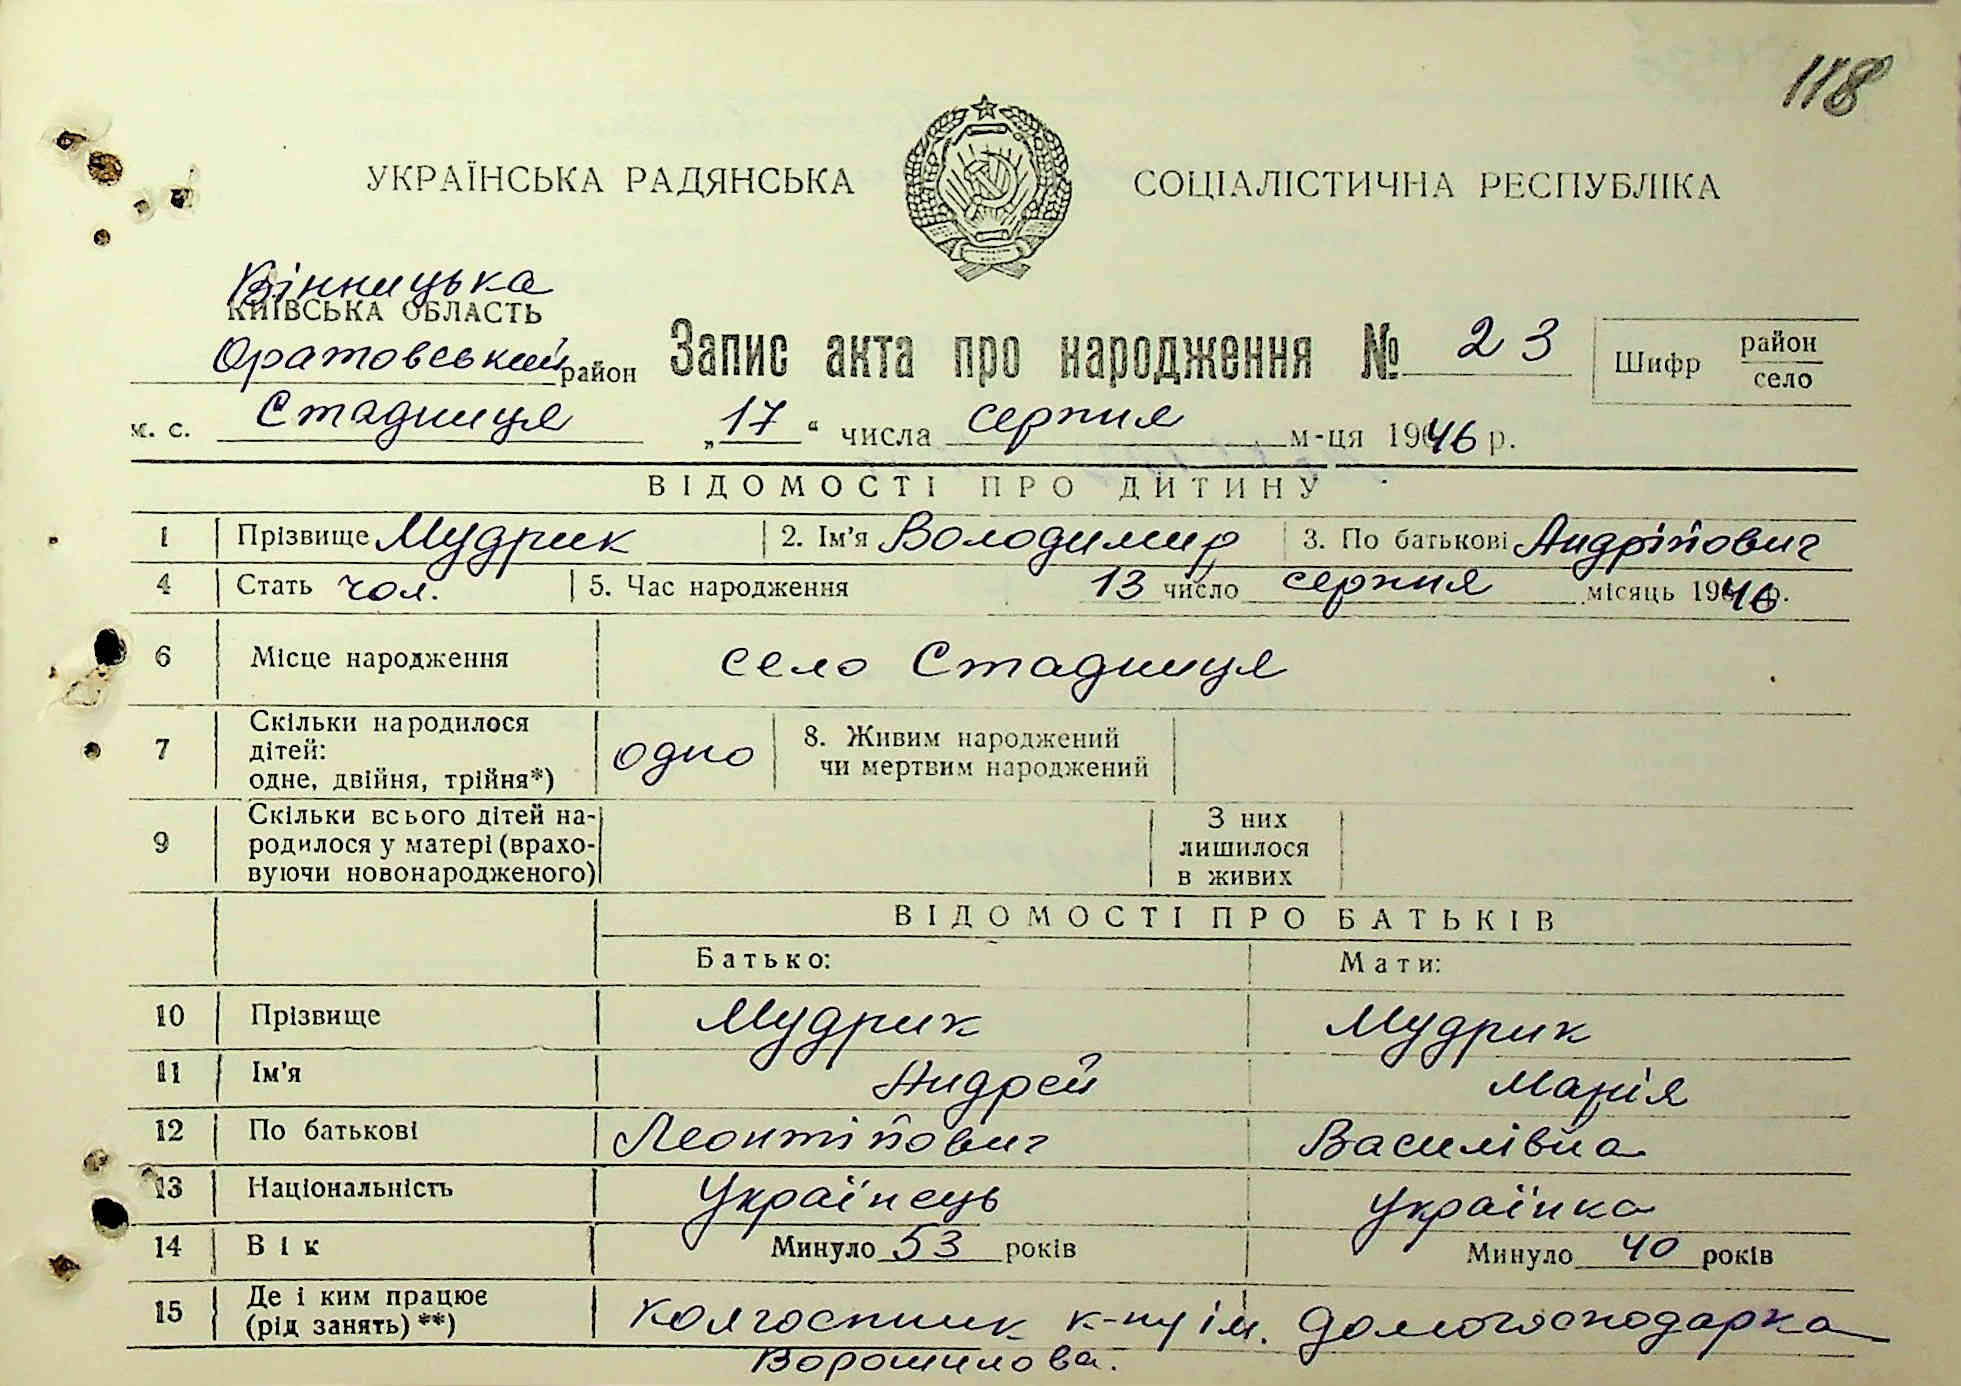 118
УКРАЇНСЬКА РАДЯНСЬКА СОЦІАЛІСТИЧНА РЕСПУБЛІКА
Вінницька
КИЇВСЬКА ОБЛАСТЬ
Оратовський район Запис акта про народження № 23 Шифр район село
м. с. Стадниця „17“ числа серпня м-ця 1946 р.
ВІДОМОСТІ ПРО ДИТИНУ
1 Прізвище Мудрик 2. Ім'я Володимир 3. По батькові Андрійович
4 Стать чол. 5. Час народження 13 число серпня місяць 1946 р.
6 Місце народження село Стадниця
7 Скільки народилося дітей: одне, двійня, трійня*) одно 8. Живим народжений чи мертвим народжений
9 Скільки всього дітей народилося у матері (враховуючи новонародженого) З них лишилося в живих
ВІДОМОСТІ ПРО БАТЬКІВ
Батько: Мати:
10 Прізвище Мудрик Мудрик
11 Ім'я Андрей Марія
12 По батькові Леонтійович Василівна
13 Національність Українець Українка
14 Вік Минуло 53 років Минуло 40 років
15 Де і ким працює (рід занять)**) колгоспник к-пу ім. домогосподарка
Ворошилова.